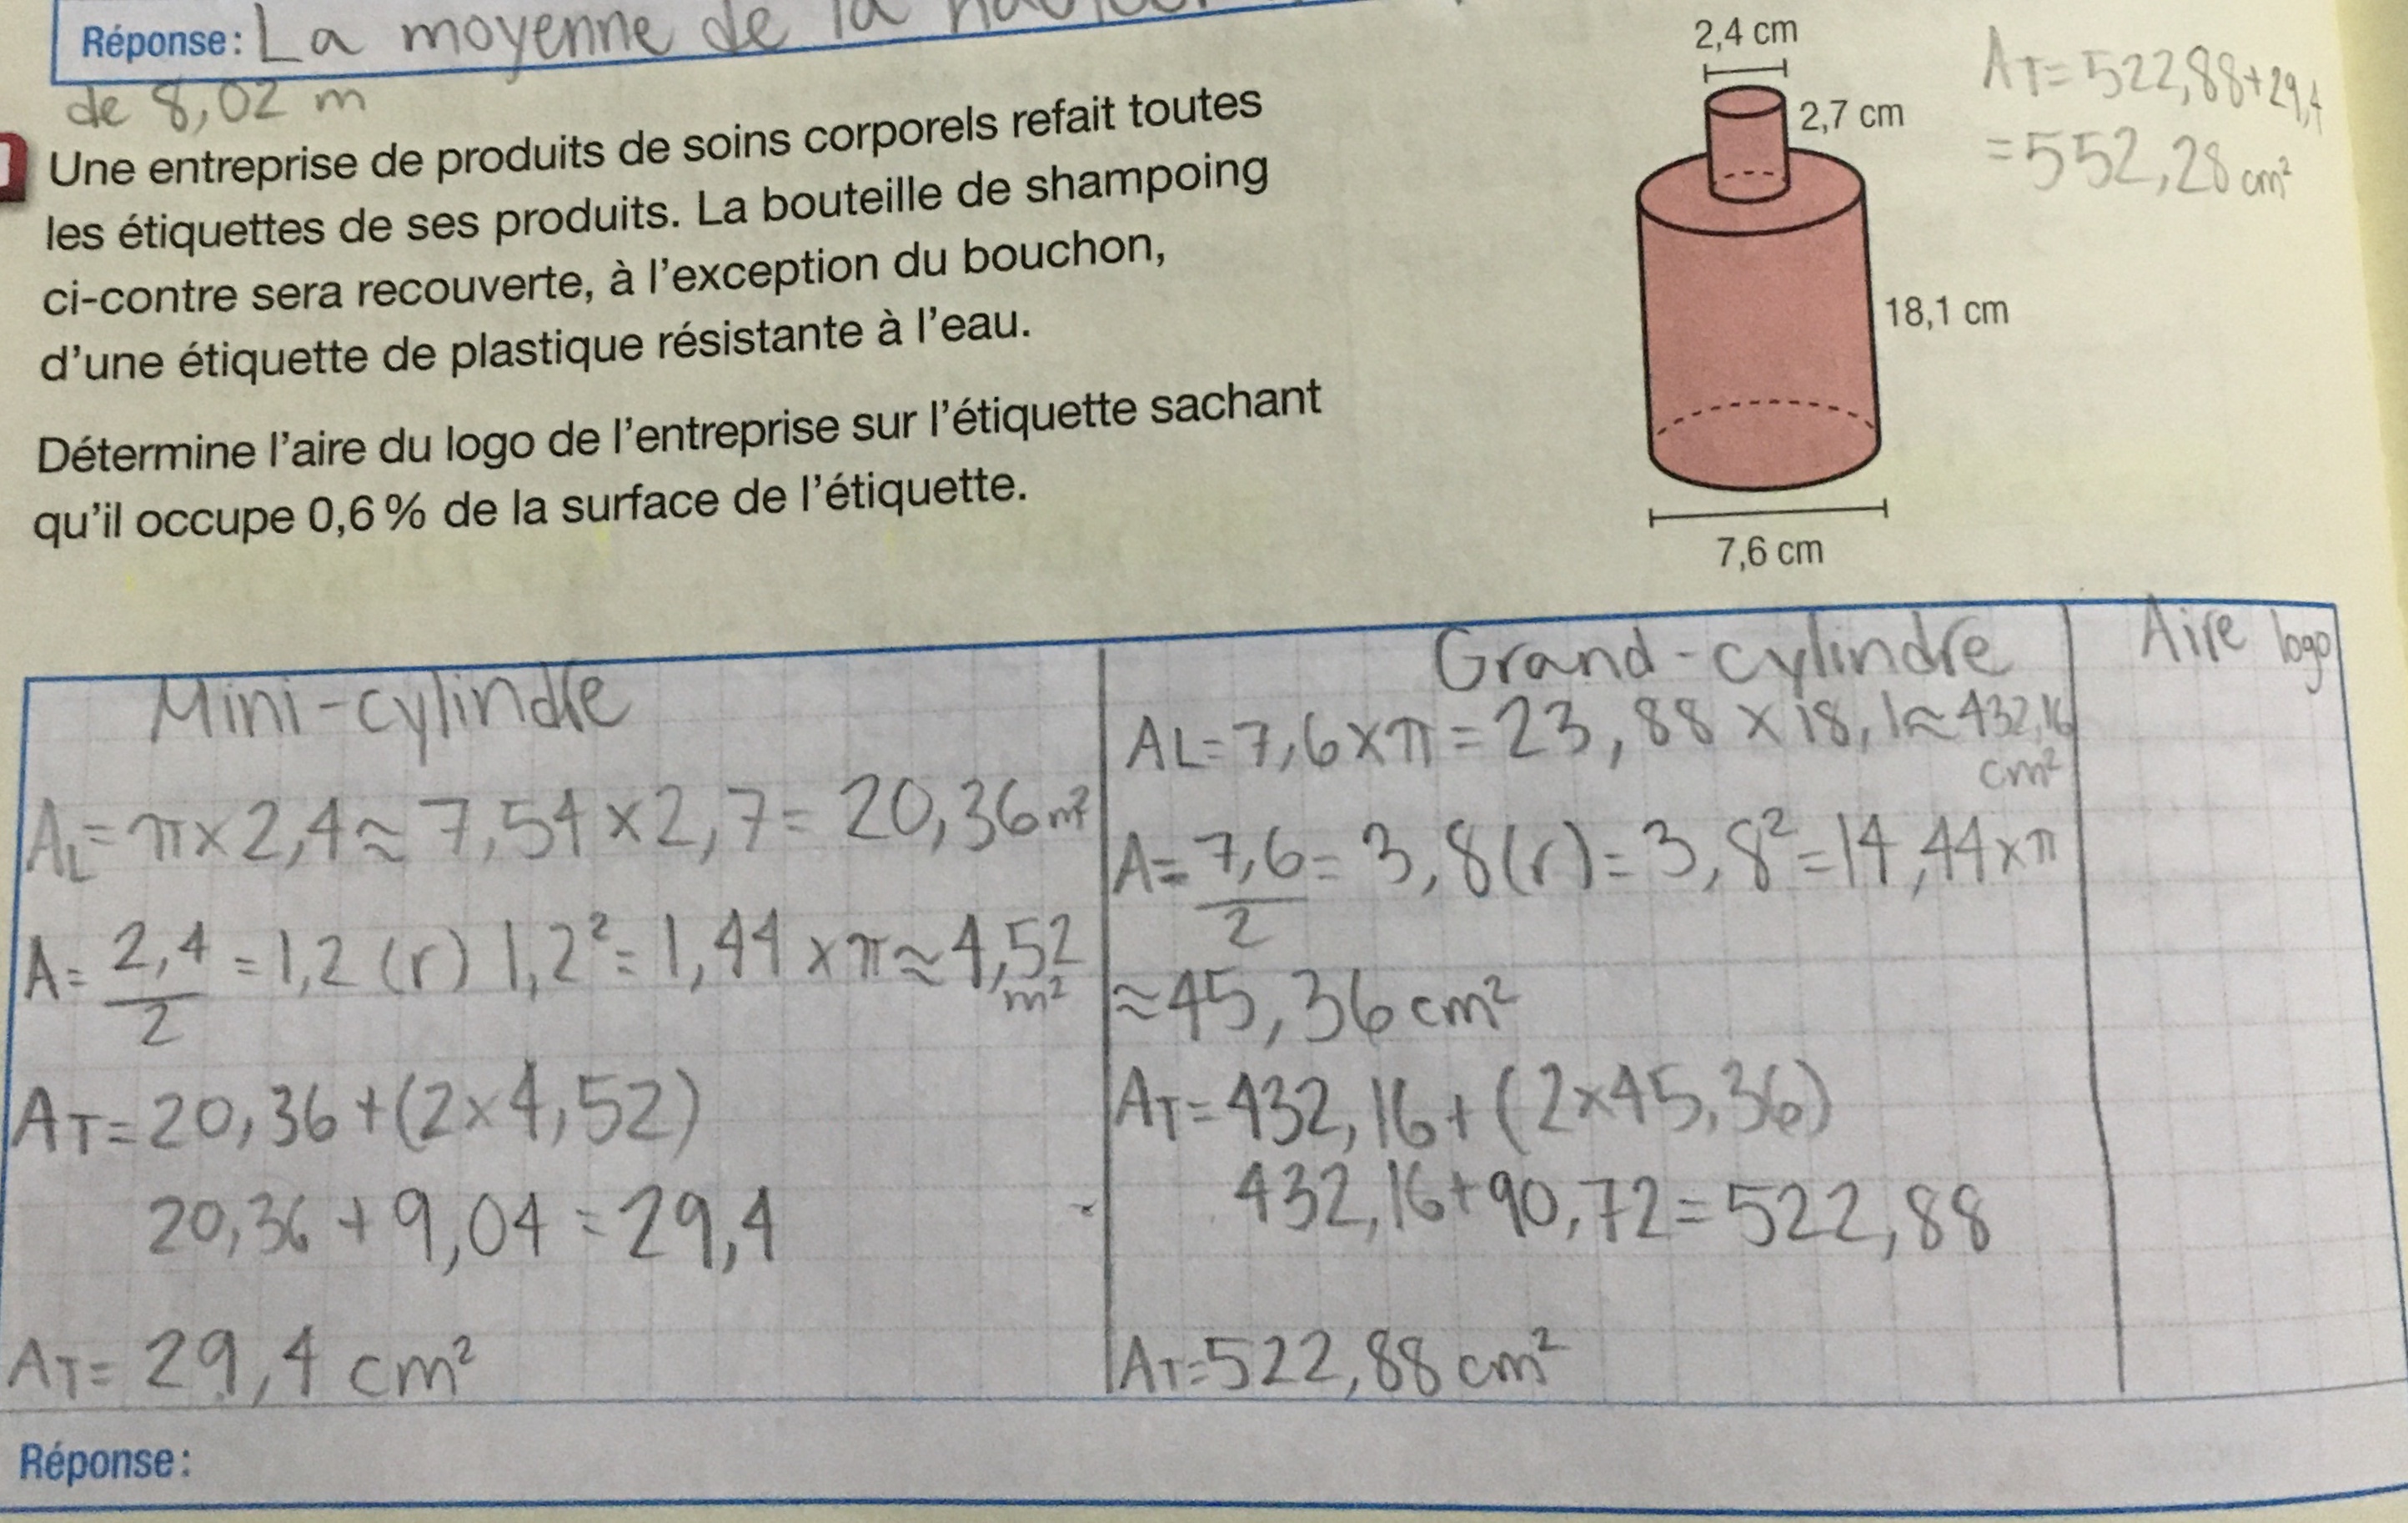 Réponse: La moyenne de la
de 8,02 m
Une entreprise de produits de soins corporels refait toutes
les étiquettes de ses produits. La bouteille de shampoing
ci-contre sera recouverte, à l'exception du bouchon,
d'une étiquette de plastique résistante à l'eau.
Détermine l'aire du logo de l'entreprise sur l'étiquette sachant
qu'il occupe 0,6 % de la surface de l'étiquette.
2,4 cm
2,7 cm
18,1 cm
7,6 cm
AT=522,88+29,4
=552,28 cm²
Mini-cylindre
AL=π×2,4≈7,54×2,7=20,36 m²
A=2,4/2=1,2 (r) 1,2²=1,44×π≈4,52
m²
AT=20,36+(2×4,52)
20,36+9,04=29,4
AT=29,4 cm²
Grand-cylindre
AL=7,6×π=23,88×18,1≈432,16
cm²
A=7,6/2=3,8(r)=3,8²=14,44×π
≈45,36 cm²
AT=432,16+(2×45,36)
432,16+90,72=522,88
AT=522,88 cm²
Aire logo
Réponse: